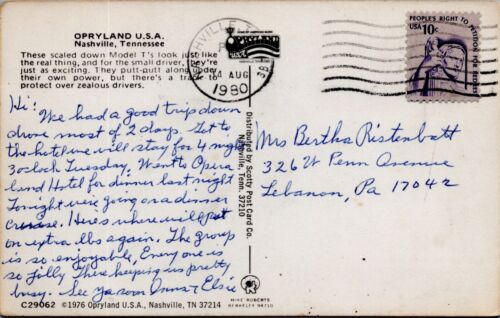 OPRYLAND U.S.A.
Nashville, Tennessee
These scaled down Model T's look just like
the real thing, and for the small driver, they're
just as exciting. They putt-putt along under
their own power, but there's a track to
protect over zealous drivers.
NASHVILLE T
PM
4 AUG
1980
PEOPLE'S RIGHT TO PETITION FOR REDRESS
USA 10c
Hi!
We had a good trip down
drove most of 2 days. Got to
the hotel we will stay for 4 nights
3 oclock Tuesday. Went to Opera
land Hotel for dinner last night
Tonight were going on a dinner
cruise. Here's where will put
on extra lbs again. The group
is so enjoyable, Everyone is
so jolly There keeping us pretty
busy. See ya soon Anna & Elsie
Mrs Bertha Ristenbatt
326 W Penn Avenue
Lebanon, Pa 17042
Distributed by Scotty Post Card Co.
Nashville, Tenn. 37210
C29062 ©1976 Opryland U.S.A., Nashville, TN 37214
MIKE ROBERTS
BERKELEY 94710